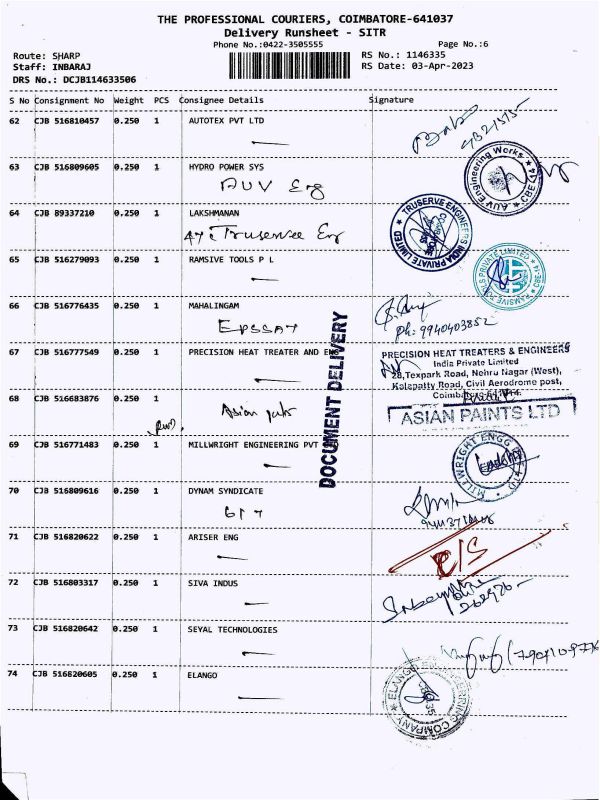 THE PROFESSIONAL COURIERS, COIMBATORE-641037
Delivery Runsheet - SITR
Phone No.:0422-3505555 Page No.:6
Route: SHARP RS No.: 1146335
Staff: INBARAJ RS Date: 03-Apr-2023
DRS No.: DCJB114633506
S No Consignment No Weight PCS Consignee Details Signature
62 CJB 516810457 0.250 1 AUTOTEX PVT LTD
63 CJB 516809605 0.250 1 HYDRO POWER SYS
AUV Eng
AUV Engineering Works CBE
64 CJB 89337210 0.250 1 LAKSHMANAN
Truservee Eng
TRUSERVE ENGINEERS INDIA PRIVATE LIMITED
65 CJB 516279093 0.250 1 RAMSIVE TOOLS P L
RAMSIVE TOOLS PRIVATE LIMITED
66 CJB 516776435 0.250 1 MAHALINGAM
EPSSAT
Ph: 9940403852
DOCUMENT DELIVERY
67 CJB 516777549 0.250 1 PRECISION HEAT TREATER AND ENG
PRECISION HEAT TREATERS & ENGINEERS
India Private Limited
28,Texpark Road, Nehru Nagar (West),
Kalapatty Road, Civil Aerodrome post,
68 CJB 516683876 0.250 1
Asian
ASIAN PAINTS LTD
69 CJB 516771483 0.250 1 MILLWRIGHT ENGINEERING PVT
MILLWRIGHT ENGG
70 CJB 516809616 0.250 1 DYNAM SYNDICATE
71 CJB 516820622 0.250 1 ARISER ENG
72 CJB 516803317 0.250 1 SIVA INDUS
73 CJB 516820642 0.250 1 SEYAL TECHNOLOGIES
74 CJB 516820605 0.250 1 ELANGO
ELANGO ENGINEERING COMPANY